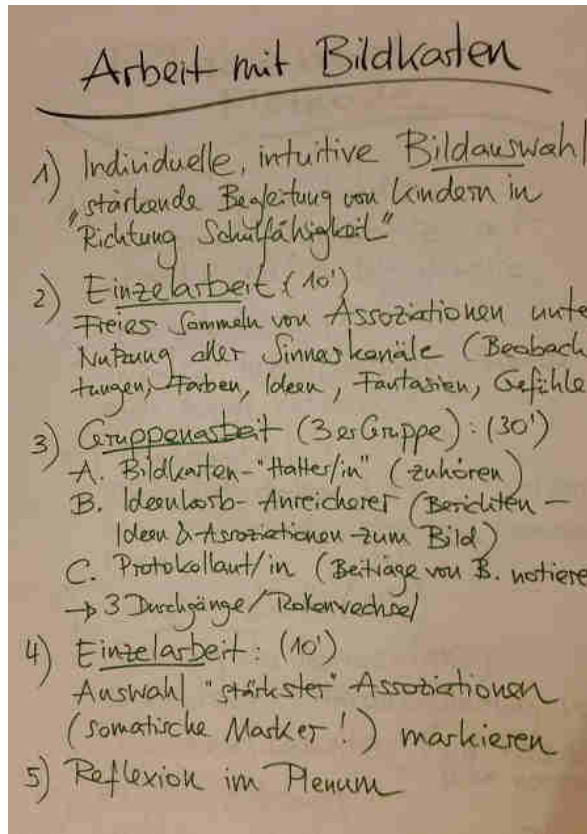 Arbeit mit Bildkarten
1) Individuelle, intuitive Bildauswahl
"stärkende Begleitung von Kindern in
Richtung Schulfähigkeit"
2) Einzelarbeit (10')
Freies Sammeln von Assoziationen unte
Nutzung aller Sinneskanäle (Beobach
tungen, Farben, Ideen, Fantasien, Gefühle
3) Gruppenarbeit (3er Gruppe): (30')
A. Bildkarten-"Halter/in" (zuhören)
B. Ideenkorb-Anreicherer (Berichten –
Ideen & Assoziationen zum Bild)
C. Protokollant/in (Beiträge von B. notiere
→ 3 Durchgänge/Rollenwechsel
4) Einzelarbeit: (10')
Auswahl "stärkster" Assoziationen
(somatische Marker!) markieren
5) Reflexion im Plenum